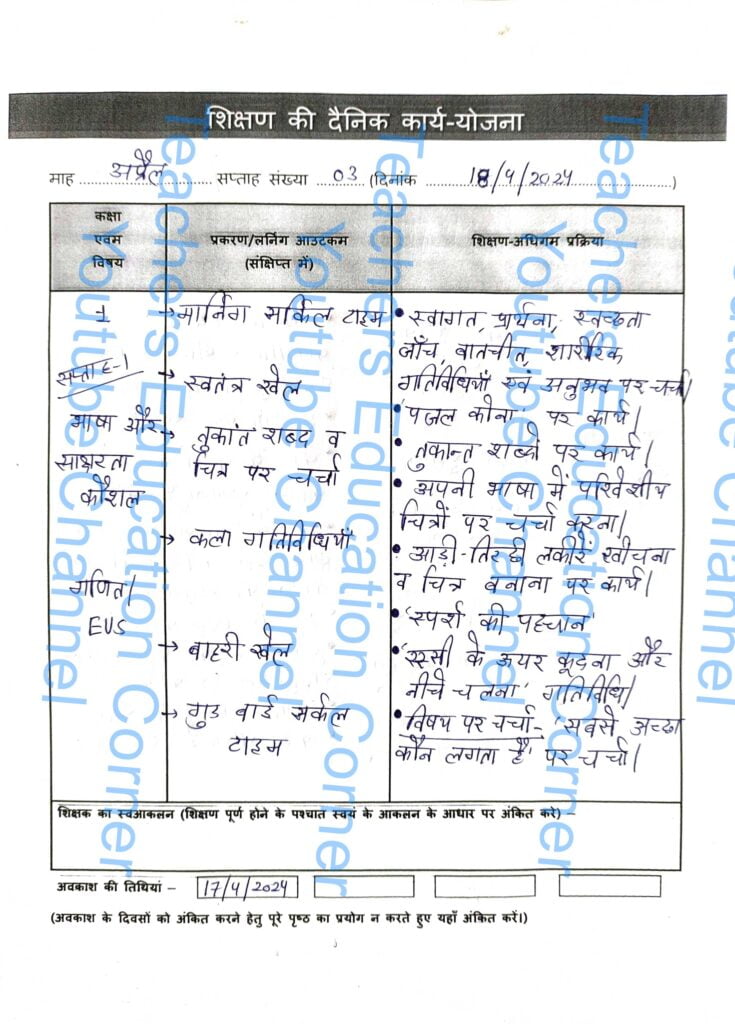 शिक्षण की दैनिक कार्य-योजना
माह अप्रैल सप्ताह संख्या 03 (दिनांक 18/4/2024)
कक्षा
एवम
विषय
प्रकरण/लर्निंग आउटकम
(संक्षिप्त में)
शिक्षण-अधिगम प्रक्रिया
1
सप्ताह-1
भाषा और
साक्षरता
कौशल
गणित/
EVS
→ मार्निंग सर्किल टाइम
→ स्वतंत्र खेल
→ तुकांत शब्द व
चित्र पर चर्चा
→ कला गतिविधियाँ
→ बाहरी खेल
→ गुड बाई सर्कल
टाइम
• स्वागत, प्रार्थना, स्वच्छता
जाँच, वातचीत, शारीरिक
गतिविधियाँ एवं अनुभव पर चर्चा।
• 'पजल कोना' पर कार्य।
• तुकान्त शब्दों पर कार्य।
• अपनी भाषा में परिवेशीय
चित्रों पर चर्चा करना।
• आड़ी-तिरछी लकीरें खींचना
व चित्र बनाना पर कार्य।
• 'स्पर्श की पहचान'
• 'रस्सी के ऊपर कूदना और
नीचे चलना' गतिविधि।
• विषय पर चर्चा- 'सबसे अच्छा
कौन लगता है' पर चर्चा।
शिक्षक का स्वआकलन (शिक्षण पूर्ण होने के पश्चात स्वयं के आकलन के आधार पर अंकित करे) –
अवकाश की तिथियां – 17/4/2024
(अवकाश के दिवसों को अंकित करने हेतु पूरे पृष्ठ का प्रयोग न करते हुए यहाँ अंकित करें।)
Teachers Education Corner
Youtube Channel
Teachers Education Corner
Youtube Channel
Teachers Education Corner
Youtube Channel